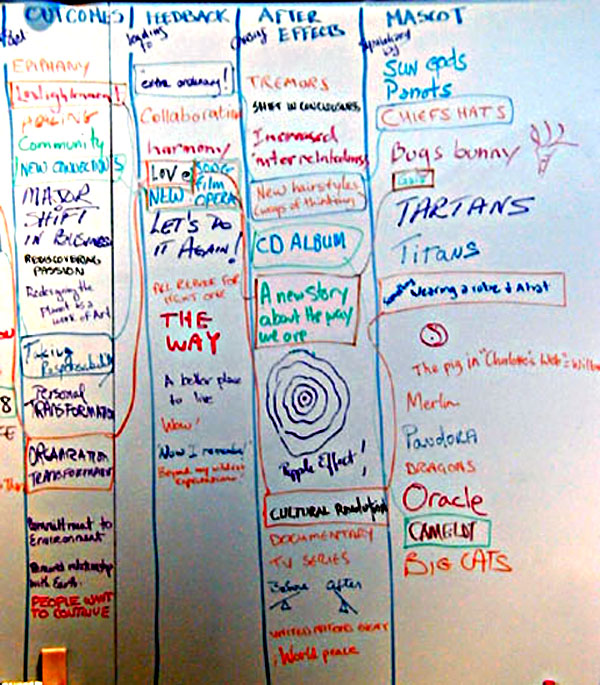 OUTCOMES
EPIPHANY
HEALING
Community
NEW CONNECTIONS
MAJOR
SHIFT
IN BUSINESS
REDISCOVERING
PASSION
Redesigning the
Planet as a
work of Art
Taking
Responsibility
Personal
TRANSFORMATION
ORGANIZATION
TRANSFORMATION
Commitment to
Environment
relationship
with Earth.
PEOPLE WANT
TO CONTINUE
FEEDBACK
leading
to
extra ordinary!
Collaboration
harmony
Love
SONG
film
NEW OPERA
LET'S DO
IT AGAIN!
THE
WAY
A better place
to live
Wow!
Now I remember!
Beyond my wildest
expectations!
AFTER
EFFECTS
TREMORS
SHIFT IN CONCIOUSNESS
Increased
interrelatedness
New hairstyles
(ways of thinking)
CD ALBUM
A new story
about the way
we are
Ripple Effect!
CULTURAL Revolution
DOCUMENTARY
TV SERIES
Before after
World peace
MASCOT
by
SUN Gods
Parrots
CHIEFS HATS
Bugs bunny
TARTANS
Titans
wearing a robe & a hat
The pig in "Charlotte's Web" = Wilbur
Merlin
Pandora
DRAGONS
Oracle
CAMELOT
BIG CATS